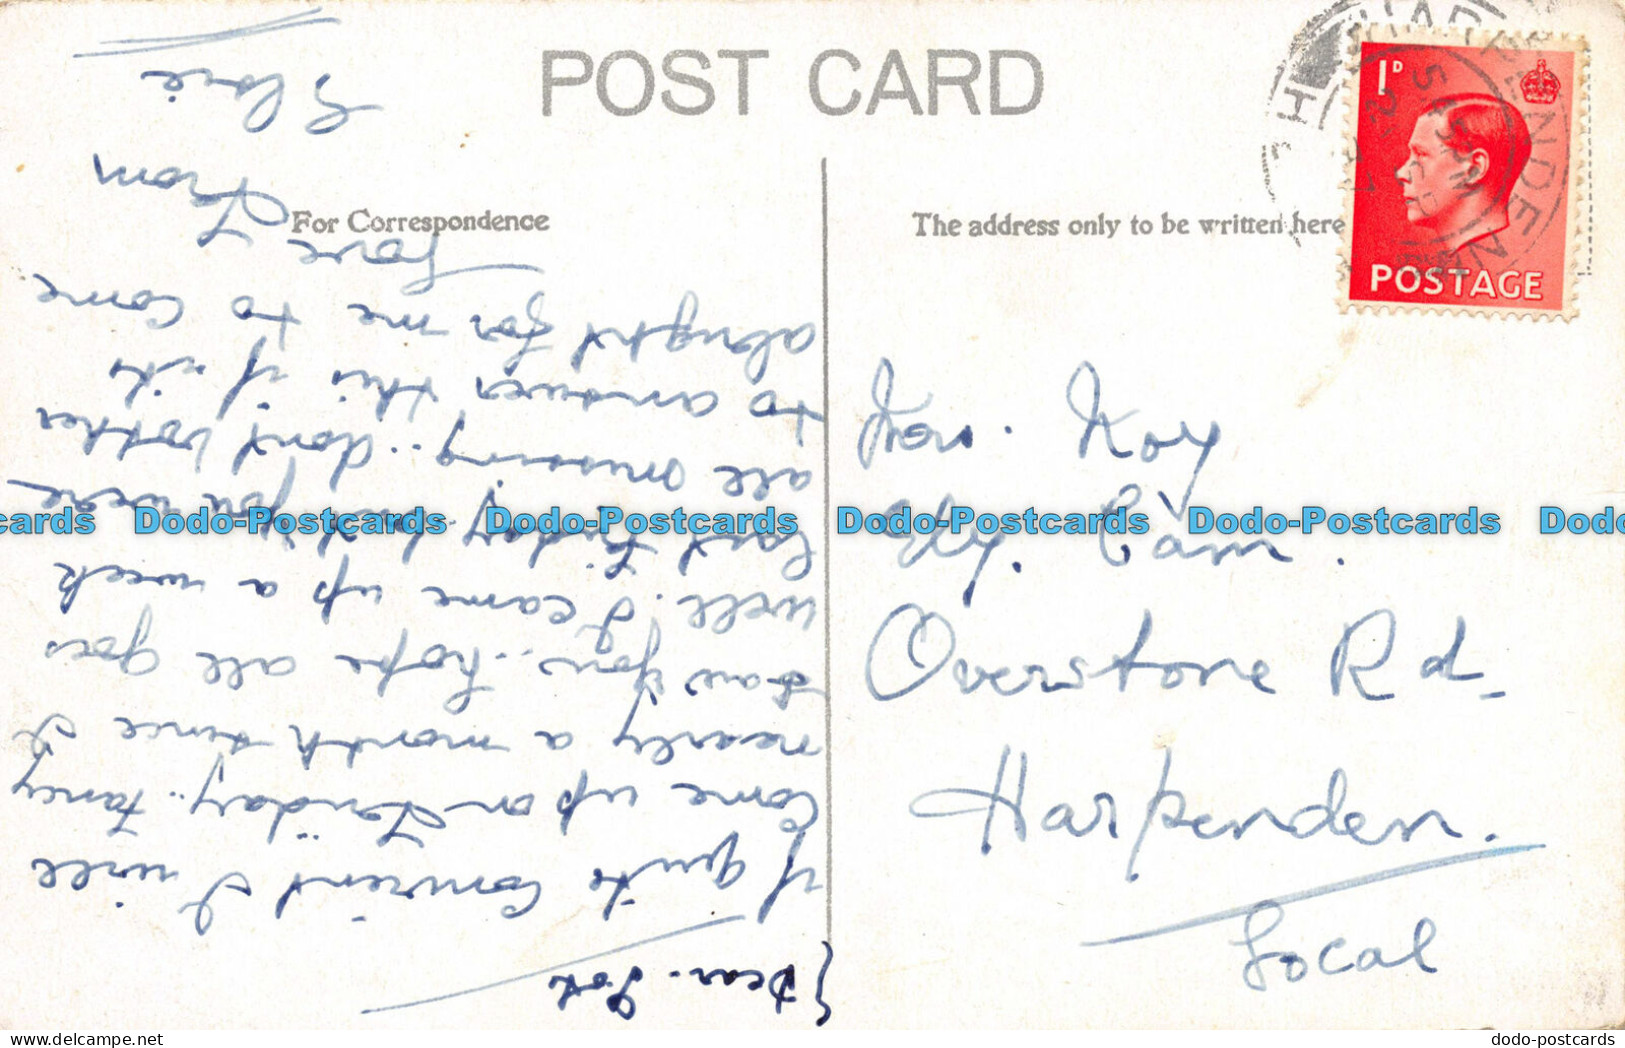 POST CARD
For Correspondence
The address only to be written here
1D
POSTAGE
HARPENDEN
Dear
if quite convient I will
come up on Friday.. Fancy
nearly a month since I
saw you.. hope all goes
well. I came up a week
last Friday but you were
all missing.. don't bother
to answer this if its
alright for me to come.
Love
From
Elsie
Mrs. Kay
Overstone Rd
Harpenden.
Local
Dodo-Postcards Dodo-Postcards Dodo-Postcards
dodo-postcards.com